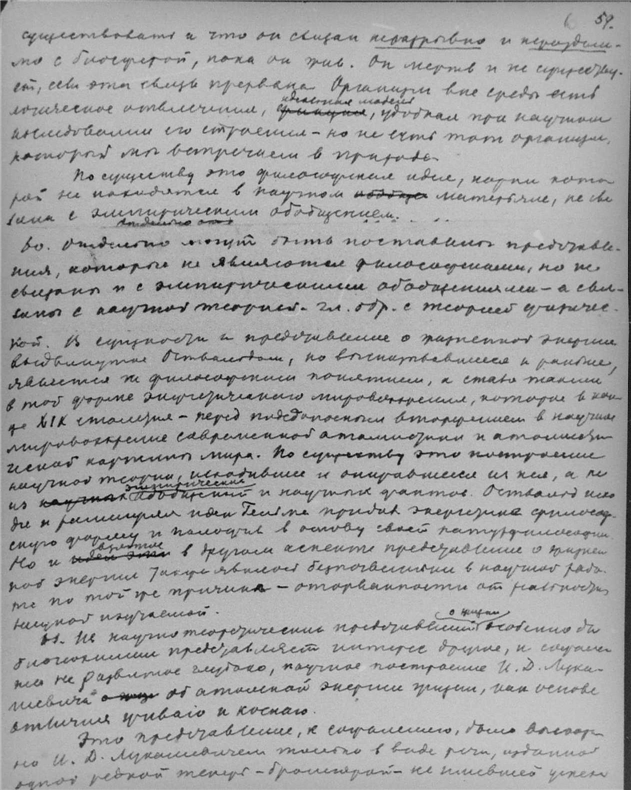 6 59.
существовать и что он связан неразрывно и нераздель-
но с биосферой, пока он жив. Он мертв и не существу-
ет, если эта связь прервана. Организм вне среды есть
логическое отвлечение, удобная при научном
исследовании его строения – но не есть тот организм,
который мы встречаем в природе.
По существу это философская идея, корни кото-
рой не находятся в научном материале, не свя-
зана с эмпирическим обобщением.
80. Отдельно могут быть поставлены представле-
ния, которые не являются философскими, но не
связаны и с эмпирическими обобщениями – а свя-
заны с научной теорией – гл. обр. с теорией физичес-
кой. В сущности и представление о жизненной энергии
выдвинутое Оствальдом, но высказывавшееся и раньше,
является не философским понятием, а стало таким
в той форме энергетического мировоззрения, которое в кон-
це XIX столетия – перед последним вторжением в научное
мировоззрение современной атомистики и атомисти-
ческой картины мира. По существу это построение
научной теории, исходившее и опиравшееся из нее, а не
из эмпирических обобщений и научных фактов. Оствальд
и расширяя идеи Гельма придал энергетике философ-
скую форму и положил в основу своей натурфилософии.
Но и в другом аспекте представление о жизнен-
ной энергии также явилось бесплодным в научной рабо-
те по той же причине – оторванности от
научной изучаемой.
81. Из научно теоретических представлений о жизни особенно для
биогеохимии представляет интерес другое, к сожале-
нию не развитое глубоко, научное построение И. Д. Лука-
шевича об атомной энергии жизни, как основе
отличия живого и косного.
Это представление, к сожалению, было
но И. Д. Лукашевичем только в виде речи, изданной
одной теперь – брошюрой – не имевшей